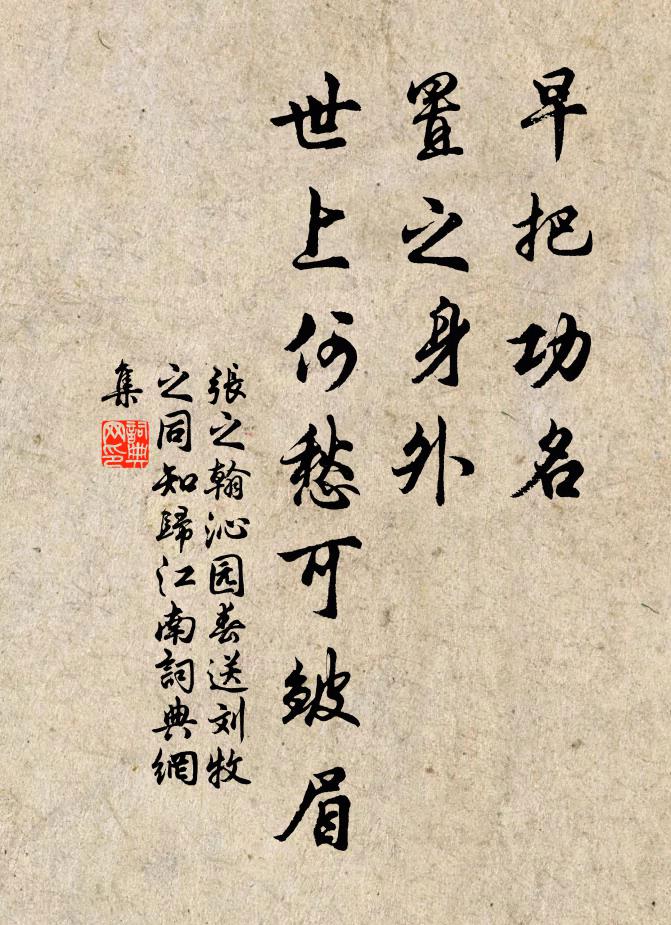 早把功名
置之身外
世上何愁可皱眉
張之翰沁园春送刘牧
之同知歸江南詞典網
集
詞典
网印